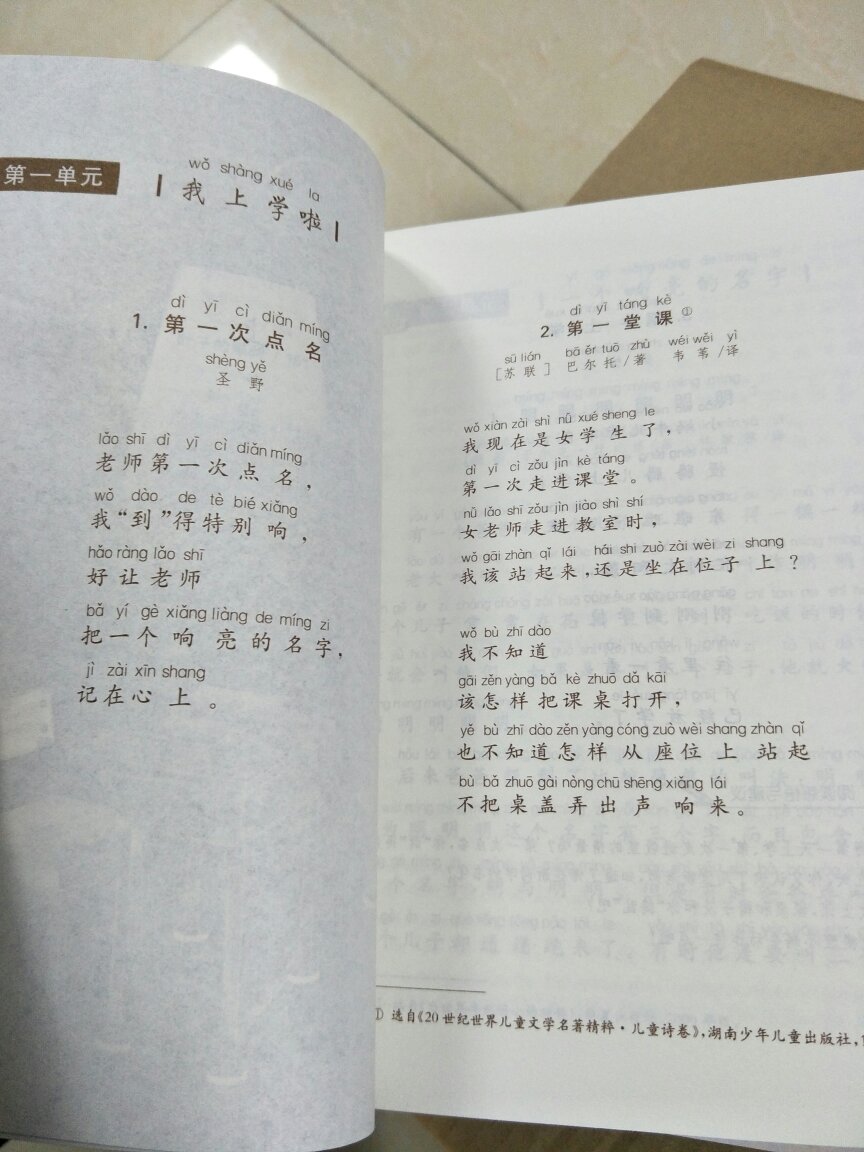 第一单元
wǒ shàng xué la
我上学啦
dì yī cì diǎn míng
1. 第一次点名
shèng yě
圣野
lǎo shī dì yī cì diǎn míng
老师第一次点名，
wǒ dào de tè bié xiǎng
我“到”得特别响，
hǎo ràng lǎo shī
好让老师
bǎ yí gè xiǎng liàng de míng zi
把一个响亮的名字，
jì zài xīn shang
记在心上。
dì yī táng kè
2. 第一堂课①
sū lián bā ěr tuō zhù wéi wěi yì
［苏联］巴尔托/著 韦苇/译
wǒ xiàn zài shì nǚ xué sheng le
我现在是女学生了，
dì yī cì zǒu jìn kè táng
第一次走进课堂。
nǚ lǎo shī zǒu jìn jiào shì shí
女老师走进教室时，
wǒ gāi zhàn qǐ lái hái shi zuò zài wèi zi shang
我该站起来，还是坐在位子上？
wǒ bù zhī dào
我不知道
gāi zěn yàng bǎ kè zhuō dǎ kāi
该怎样把课桌打开，
yě bù zhī dào zěn yàng cóng zuò wèi shang zhàn qǐ
也不知道怎样从座位上站起
bù bǎ zhuō gài nòng chū shēng xiǎng lái
不把桌盖弄出声响来。
① 选自《20世纪世界儿童文学名著精粹·儿童诗卷》，湖南少年儿童出版社，